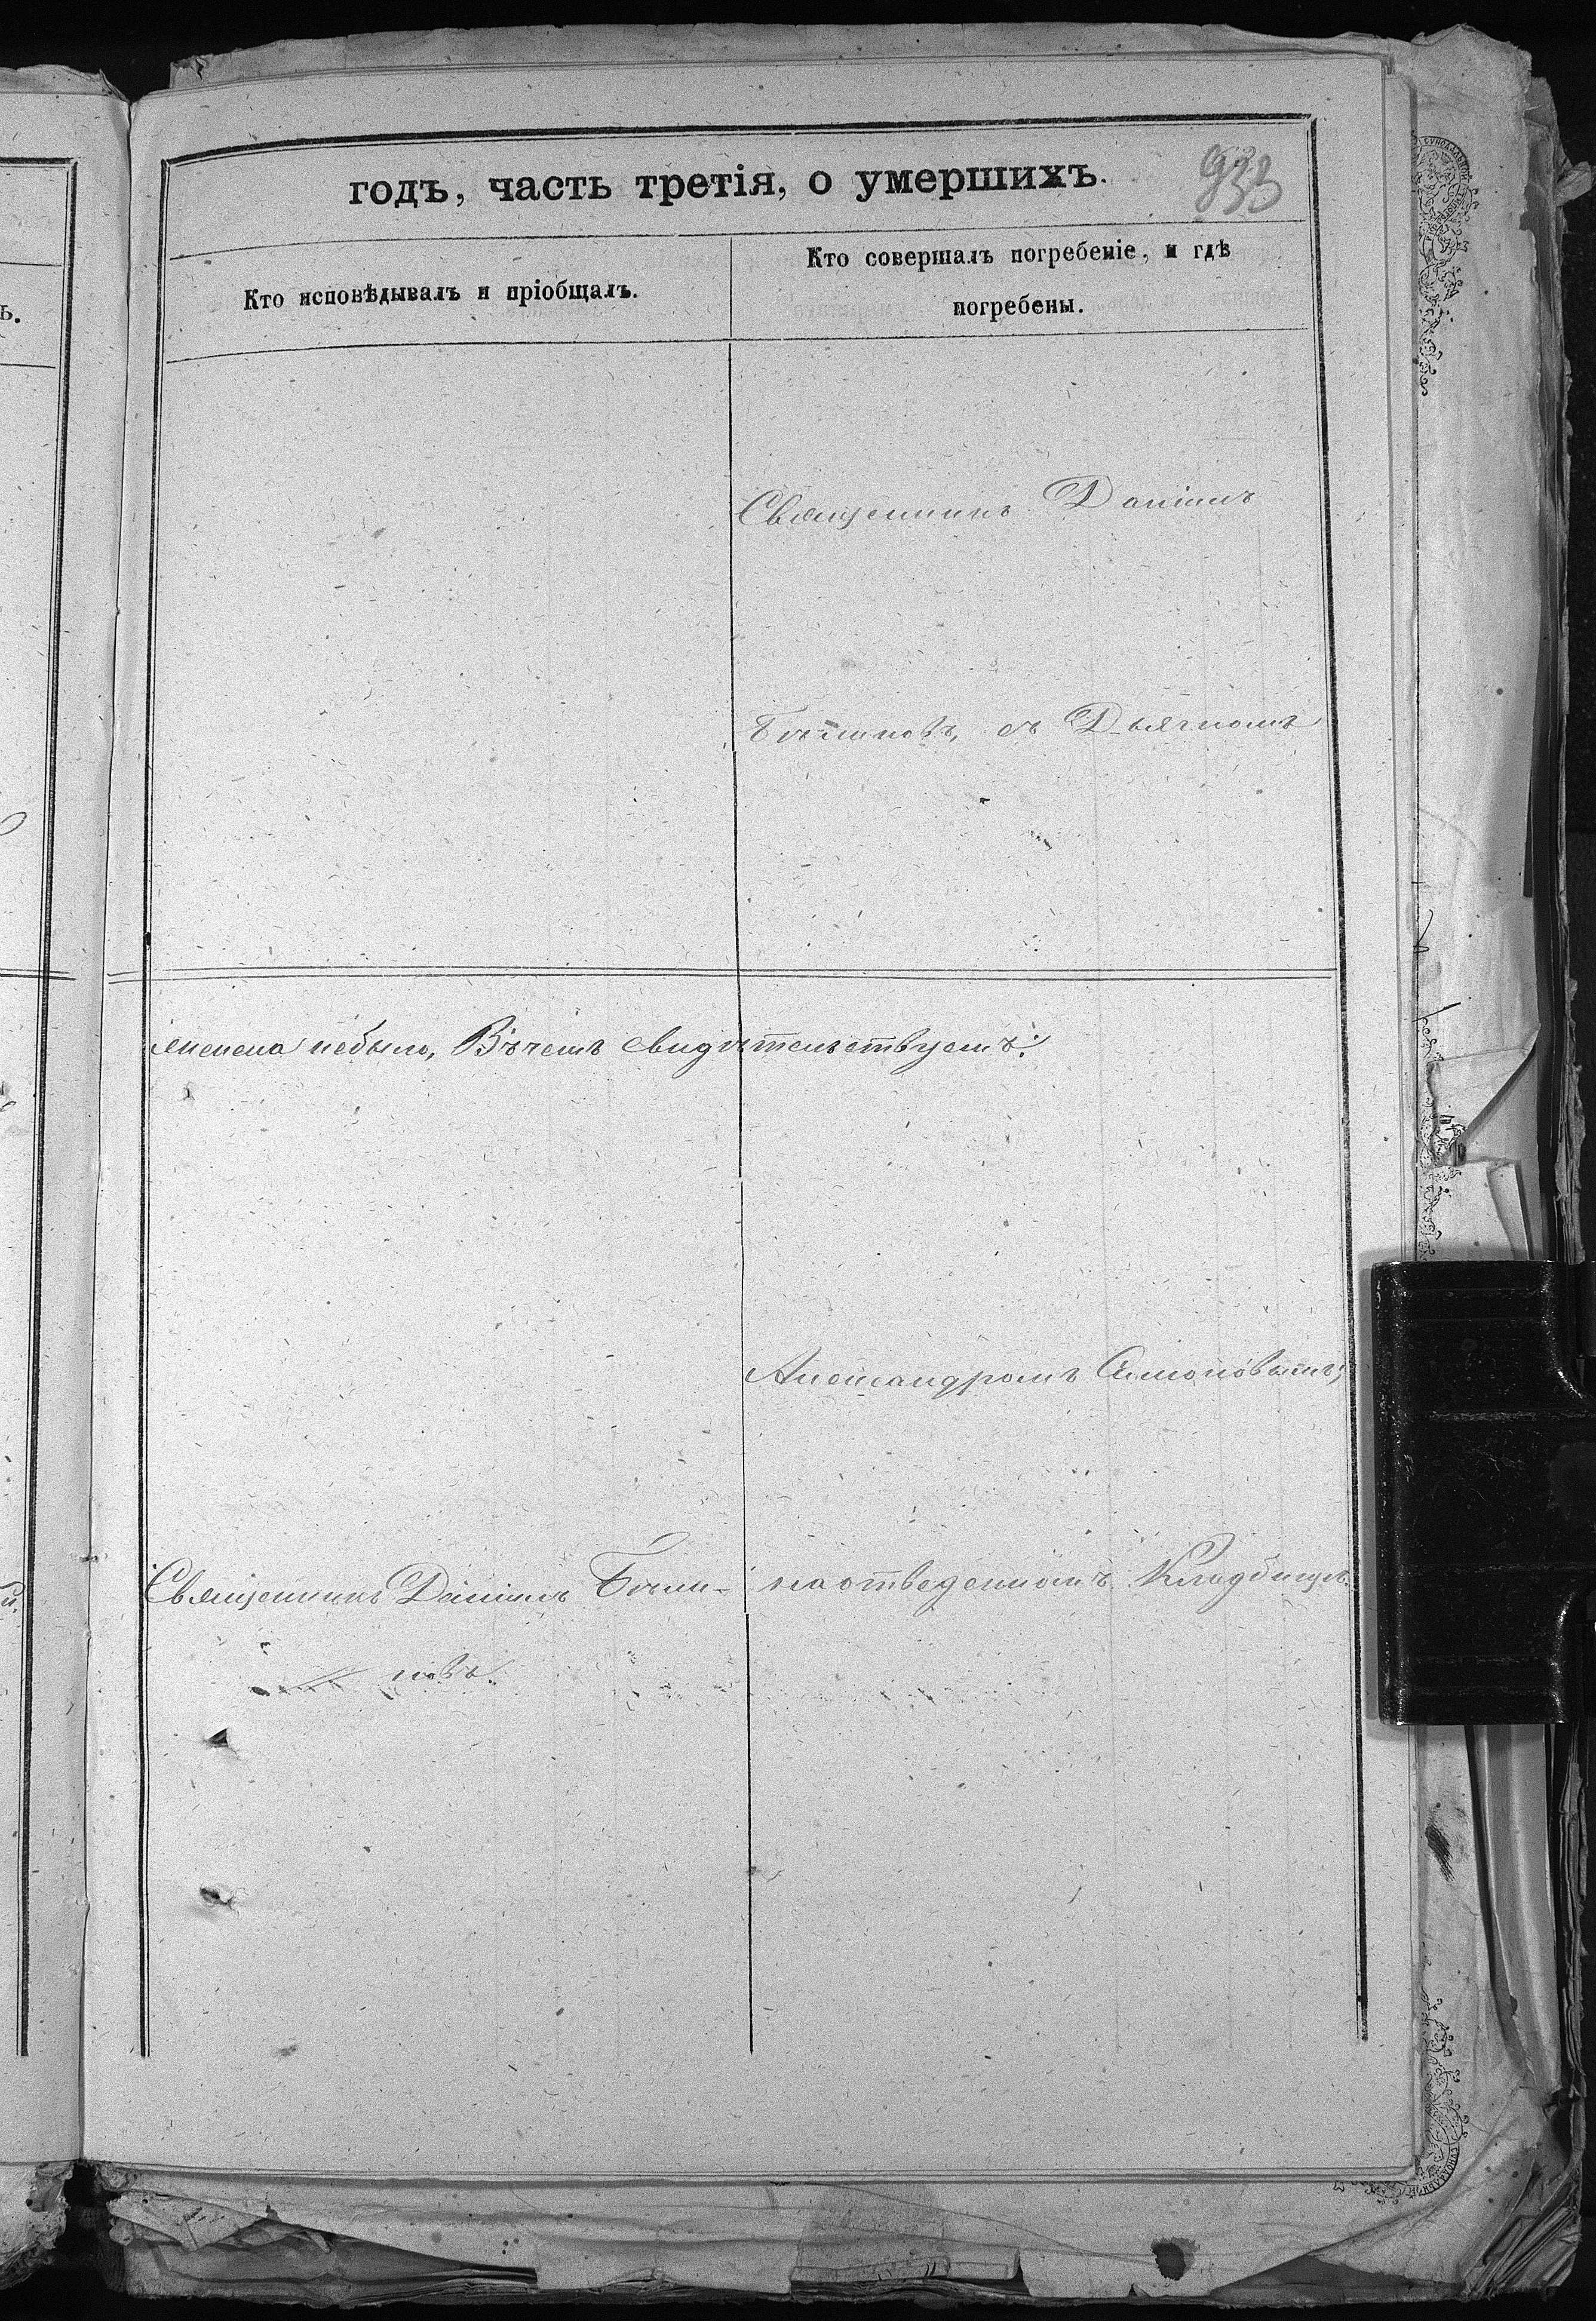 годъ, часть третія, о умершихъ.
933
Кто исповѣдывалъ и пріобщалъ.
Кто совершалъ погребеніе, и гдѣ
погребены.
Священникъ Даніилъ
съ Дьячкомъ
небыло, Въ чемъ свидѣтельствуемъ:
Александромъ Симоновымъ,
Священникъ Даніилъ
на отведенномъ Кладбищѣ.
новъ.